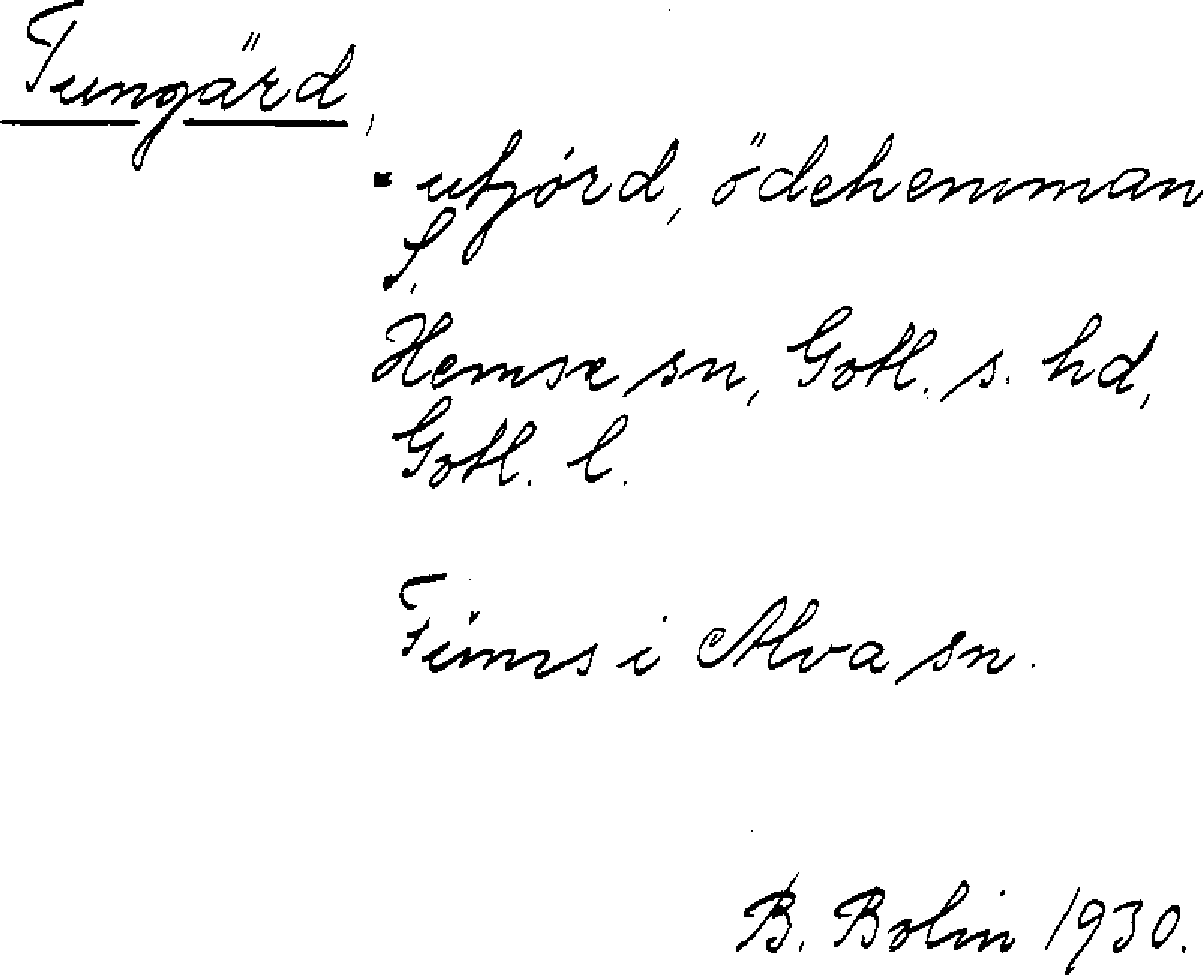 Tungärd,
utjord, ödehemman
S.
Hemse sn, Gotl. s. hd,
Gotl. l.
Finns i Alva sn.
B. Bolin 1930.